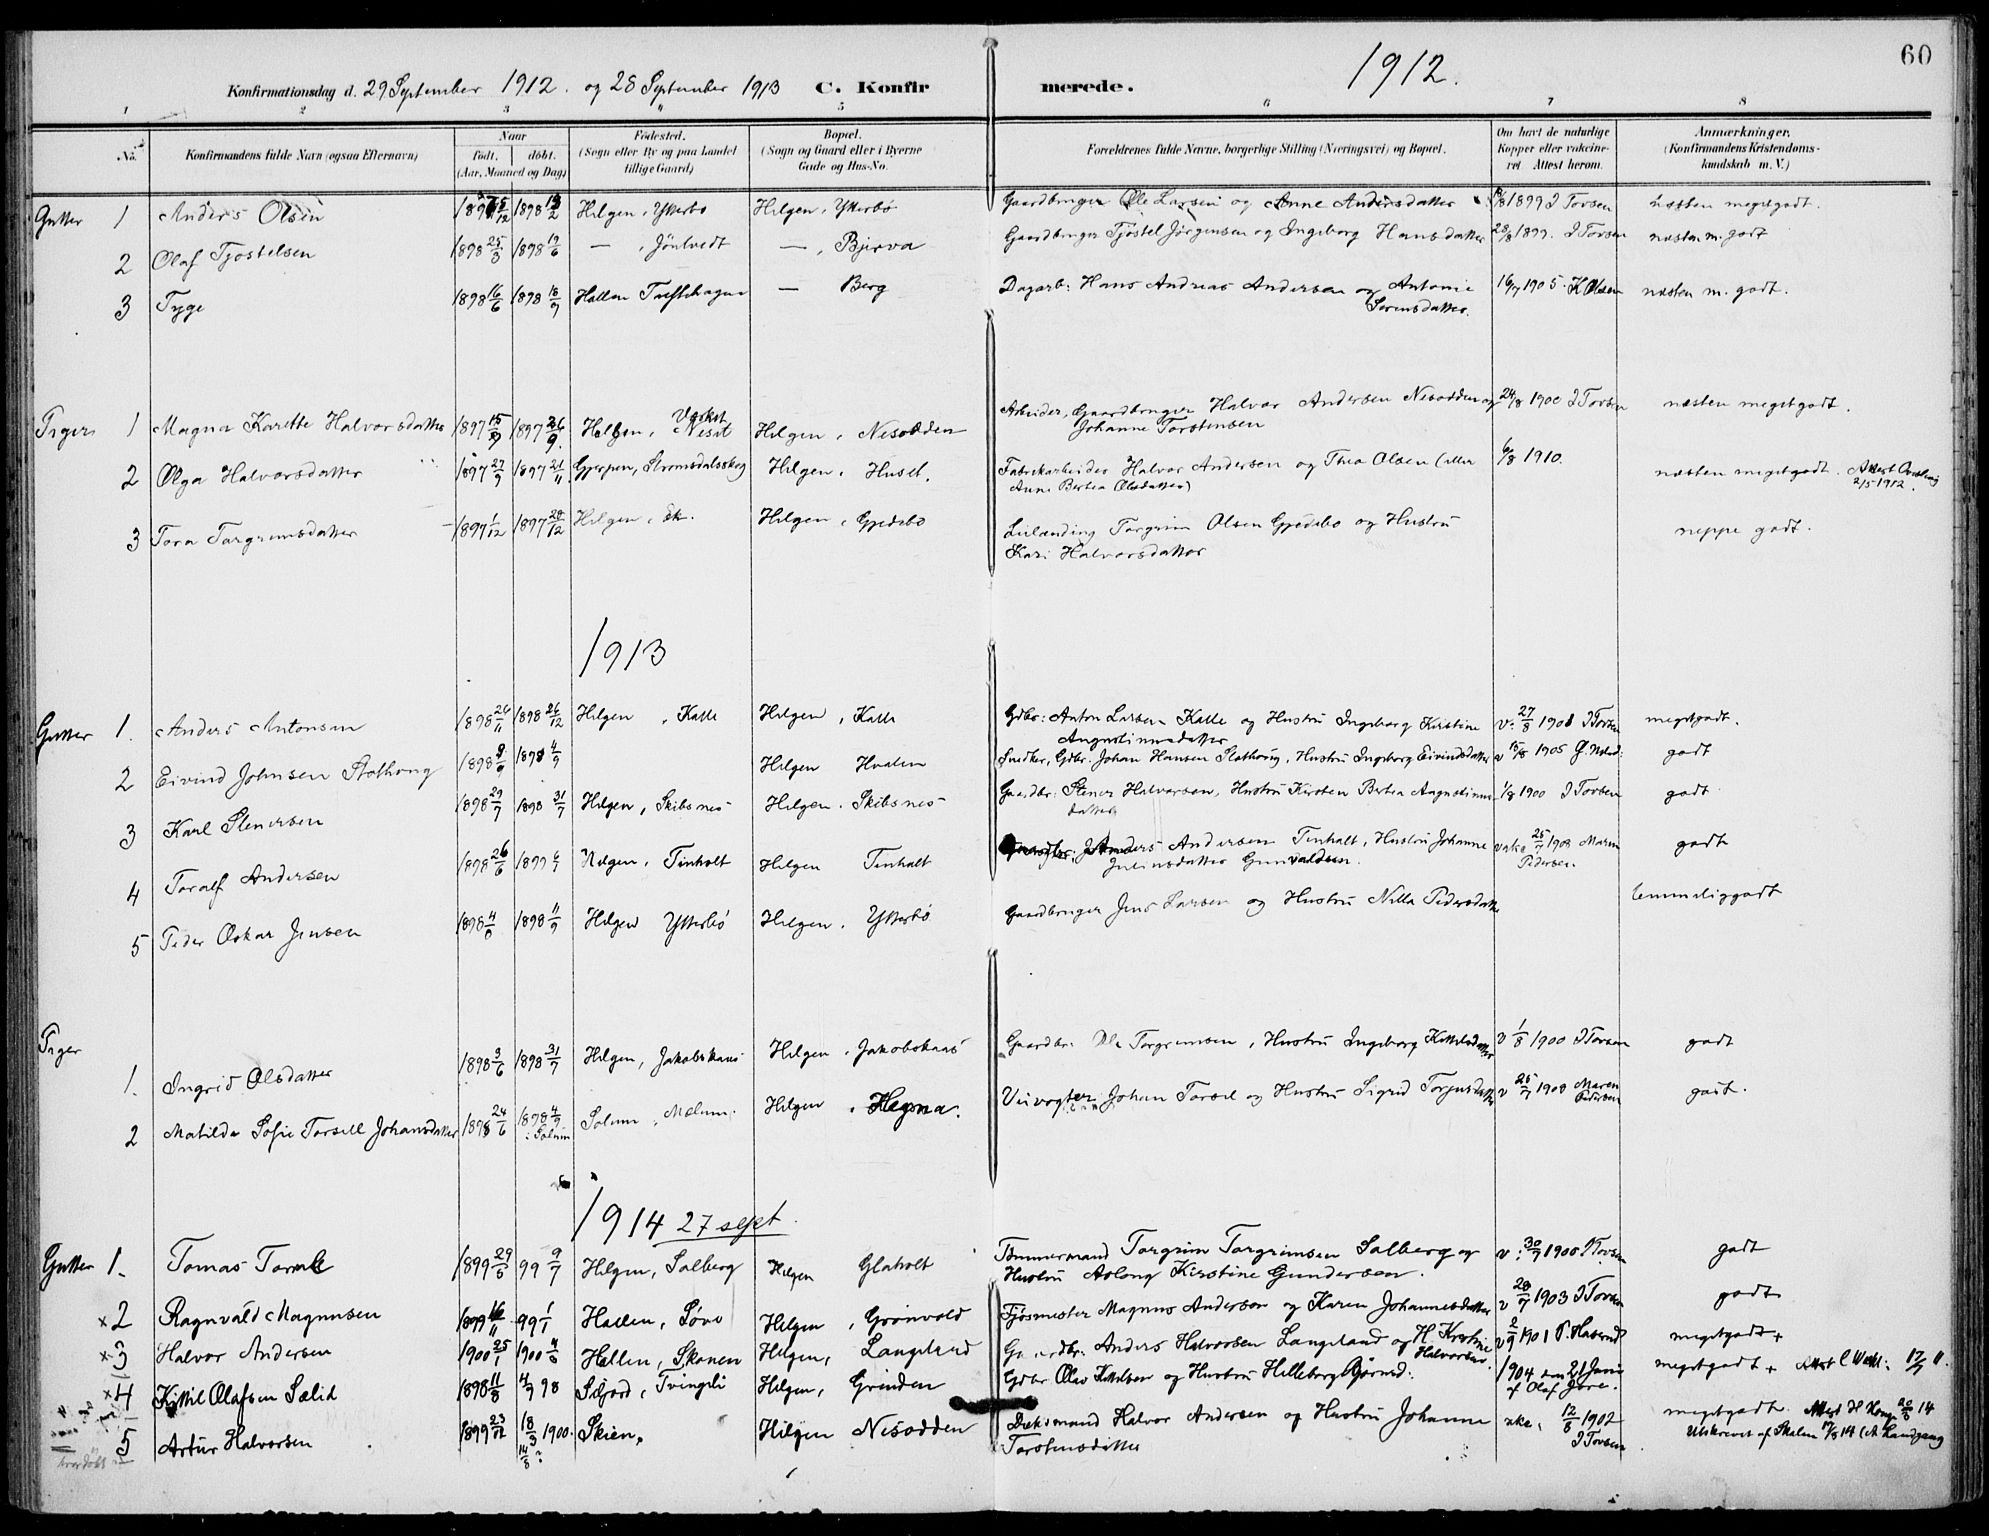 60
Konfirmationsdag d. 29 September 1912. og 28 September 1913 C. Konfirmerede. 1912.
1 2 3 5 6 7 8
No. Konfirmandens fulde Navn (ogsaa Efternavn) Naar født. døbt. (Aar, Maaned og Dag) Fødested. (Sogn eller By og paa Landet tillige Gaard) Bopæl. (Sogn og Gaard eller i Byerne Gade og Hus-No. Forældrenes fulde Navne, borgerlige Stilling (Næringsvei) og Bopæl. Om havt de naturlige Kopper eller vakcineret. Attest herom. Anmærkninger. (Konfirmandens Kristendomskundskab m. V.)
Gutter 1 Anders Olsen 1898 Helgen, Ytterbø Helgen, Ytterbø Gaardbruger Ole Larsen og Anne Andersdatter 1899 I Tovsen næsten megetgodt.
2 Olaf Tjostelsen 1898 25/3 1898 19/6 — , — , Bjerva Gaardbruger Tjøstel Jørgensen og Ingeborg Hansdatter 28/8 1899. I Tovsen næsten m. godt
3 Tyge 1898 16/6 1898 18/9 Hollen — Berg Dagarb: Hans Andreas Andersen og Antonie Sørensdatter. 16/7 1905. K Olsen næsten m. godt.
Piger 1 Magna Karette Halvorsdatter 1897 15/ 1897 26/9 Helgen, Helgen, Nesodden Arbeider, Gaardbruger Halvor Andersen Nesodden og Johanne Torstensen 24/8 1900 I Tovsen næsten megetgodt.
2 Olga Halvorsdatter 1897 27/9 1897 21/11 Gjerpen, Strømsdalsskog Helgen, Huset. Fabrikarbeider Halvor Andersen og Thea Olsen (eller Anne Bertea Olsdatter) 6/8 1910. næsten megetgodt. Attest 2/5 1912.
3 Tora Torgrimsdatter 1897 1/12 1897 28/12 Helgen, Ek. Helgen, Gjedebo Leilænding Torgrim Olsen Gjedebo og Hustru Kari Halvorsdatter neppe godt.
1913
Gutter 1. Anders Antonsen 1898 24/11 1898 26/12 Helgen, Kalle Helgen, Kalle Gdbr: Anton Larsen Kalle og Hustru Ingeborg Kirstine Augustinusdatter v: 27/8 1901 I Tovsen megetgodt.
2 Eivind Johnsen Slothoug 1898 1898 4/9 Helgen Hvalen Snedker, Gdbr. Johan Hansen Slothoug, Hustru Ingeborg Eivindsdatter v 15/8 1905 godt
3 Karl Stenersen 1898 29/7 1898 31/7 Helgen, Skibsnes Helgen, Skibsnes Gaardbr: Stener Halvorsen, Hustru Kirsten Bertea Augustinusdatter 1/8 1900 I Tovsen godt
4 Toralf Andersen 1898 26/6 1899 Helgen, Tinholt Helgen Tinholt Anders Andersen Tinholt, Hustru Johanne Juliusdatter Gunvaldsen. vake 25/7 1908 Maren Pedersen. godt
5 Peder Oskar Jensen 1898 4/8 1898 11/9 Helgen Ytterbø Helgen, Ytterbø Gaardbruger Jens Larsen og Hustru Nilla Pedersdatter temmeliggodt
Piger 1. Ingrid Olsdatter 1898 3/6 1898 31/7 Helgen, Jakobskaas Helgen, Jakobskaas Gaardbr: Ole Torgrimsen, Hustru Ingeborg Kittelsdatter v 1/8 1900 I Tovsen godt
2 Matilde Sofie Torsell Johansdatter 1898 24/6 1898 4/9 i Solum Solum, Melum. Helgen, Hegna. Veivogter Johan Torsel og Hustru Sigrid Torjusdatter v 25/7 1908 Maren Pedersen godt.
1914 27 sept.
Gutter 1. Tomas 1899 29/5 99 9/7 Helgen, Solberg Helgen Glaholt Tømmermand Torgrim Torgrimsen Solberg og Hustru Aslaug Kirstine Gundersen. v: 30/7 1900 I Tovsen godt
x2 Ragnvald Magnusen 1899 16/11 99 1/1 Hollen, Løve Helgen, Grønvold Fjøsmester Magnus Anderson og Karen Johannesdatter v 28/7 1903 I Tovsen godt
x3 Halvor Andersen 1900 25/1 1900 Hollen, Skonen Helgen, Langelid Gaardbr: Anders Halvorsen Langeland og H. Kirstine Halvorsen. v 2/9 1901 megetgodt+
x4 Kittil Olafsen Sælid 1898 11/8 4/9 98 Seljord, Tvingli Helgen, Grinden Gdbr Olav Kittelsen og Hustru Helleborg Bjørnsd. 1904 den 21 Juni af Olaf Jore. megetgodt + Attest
5 Artur Halvorsen 1899 23/12 18/3 1900. 14/8? Skien, Helgen Nesodden Diksmand Halvor Andersen og Hustru Johanne Torstensdatter vake. 12/8 1902 I Tovsen megetgodt. Attest 14 Utskrevet af Skolen 17/8 14 (A Landgang